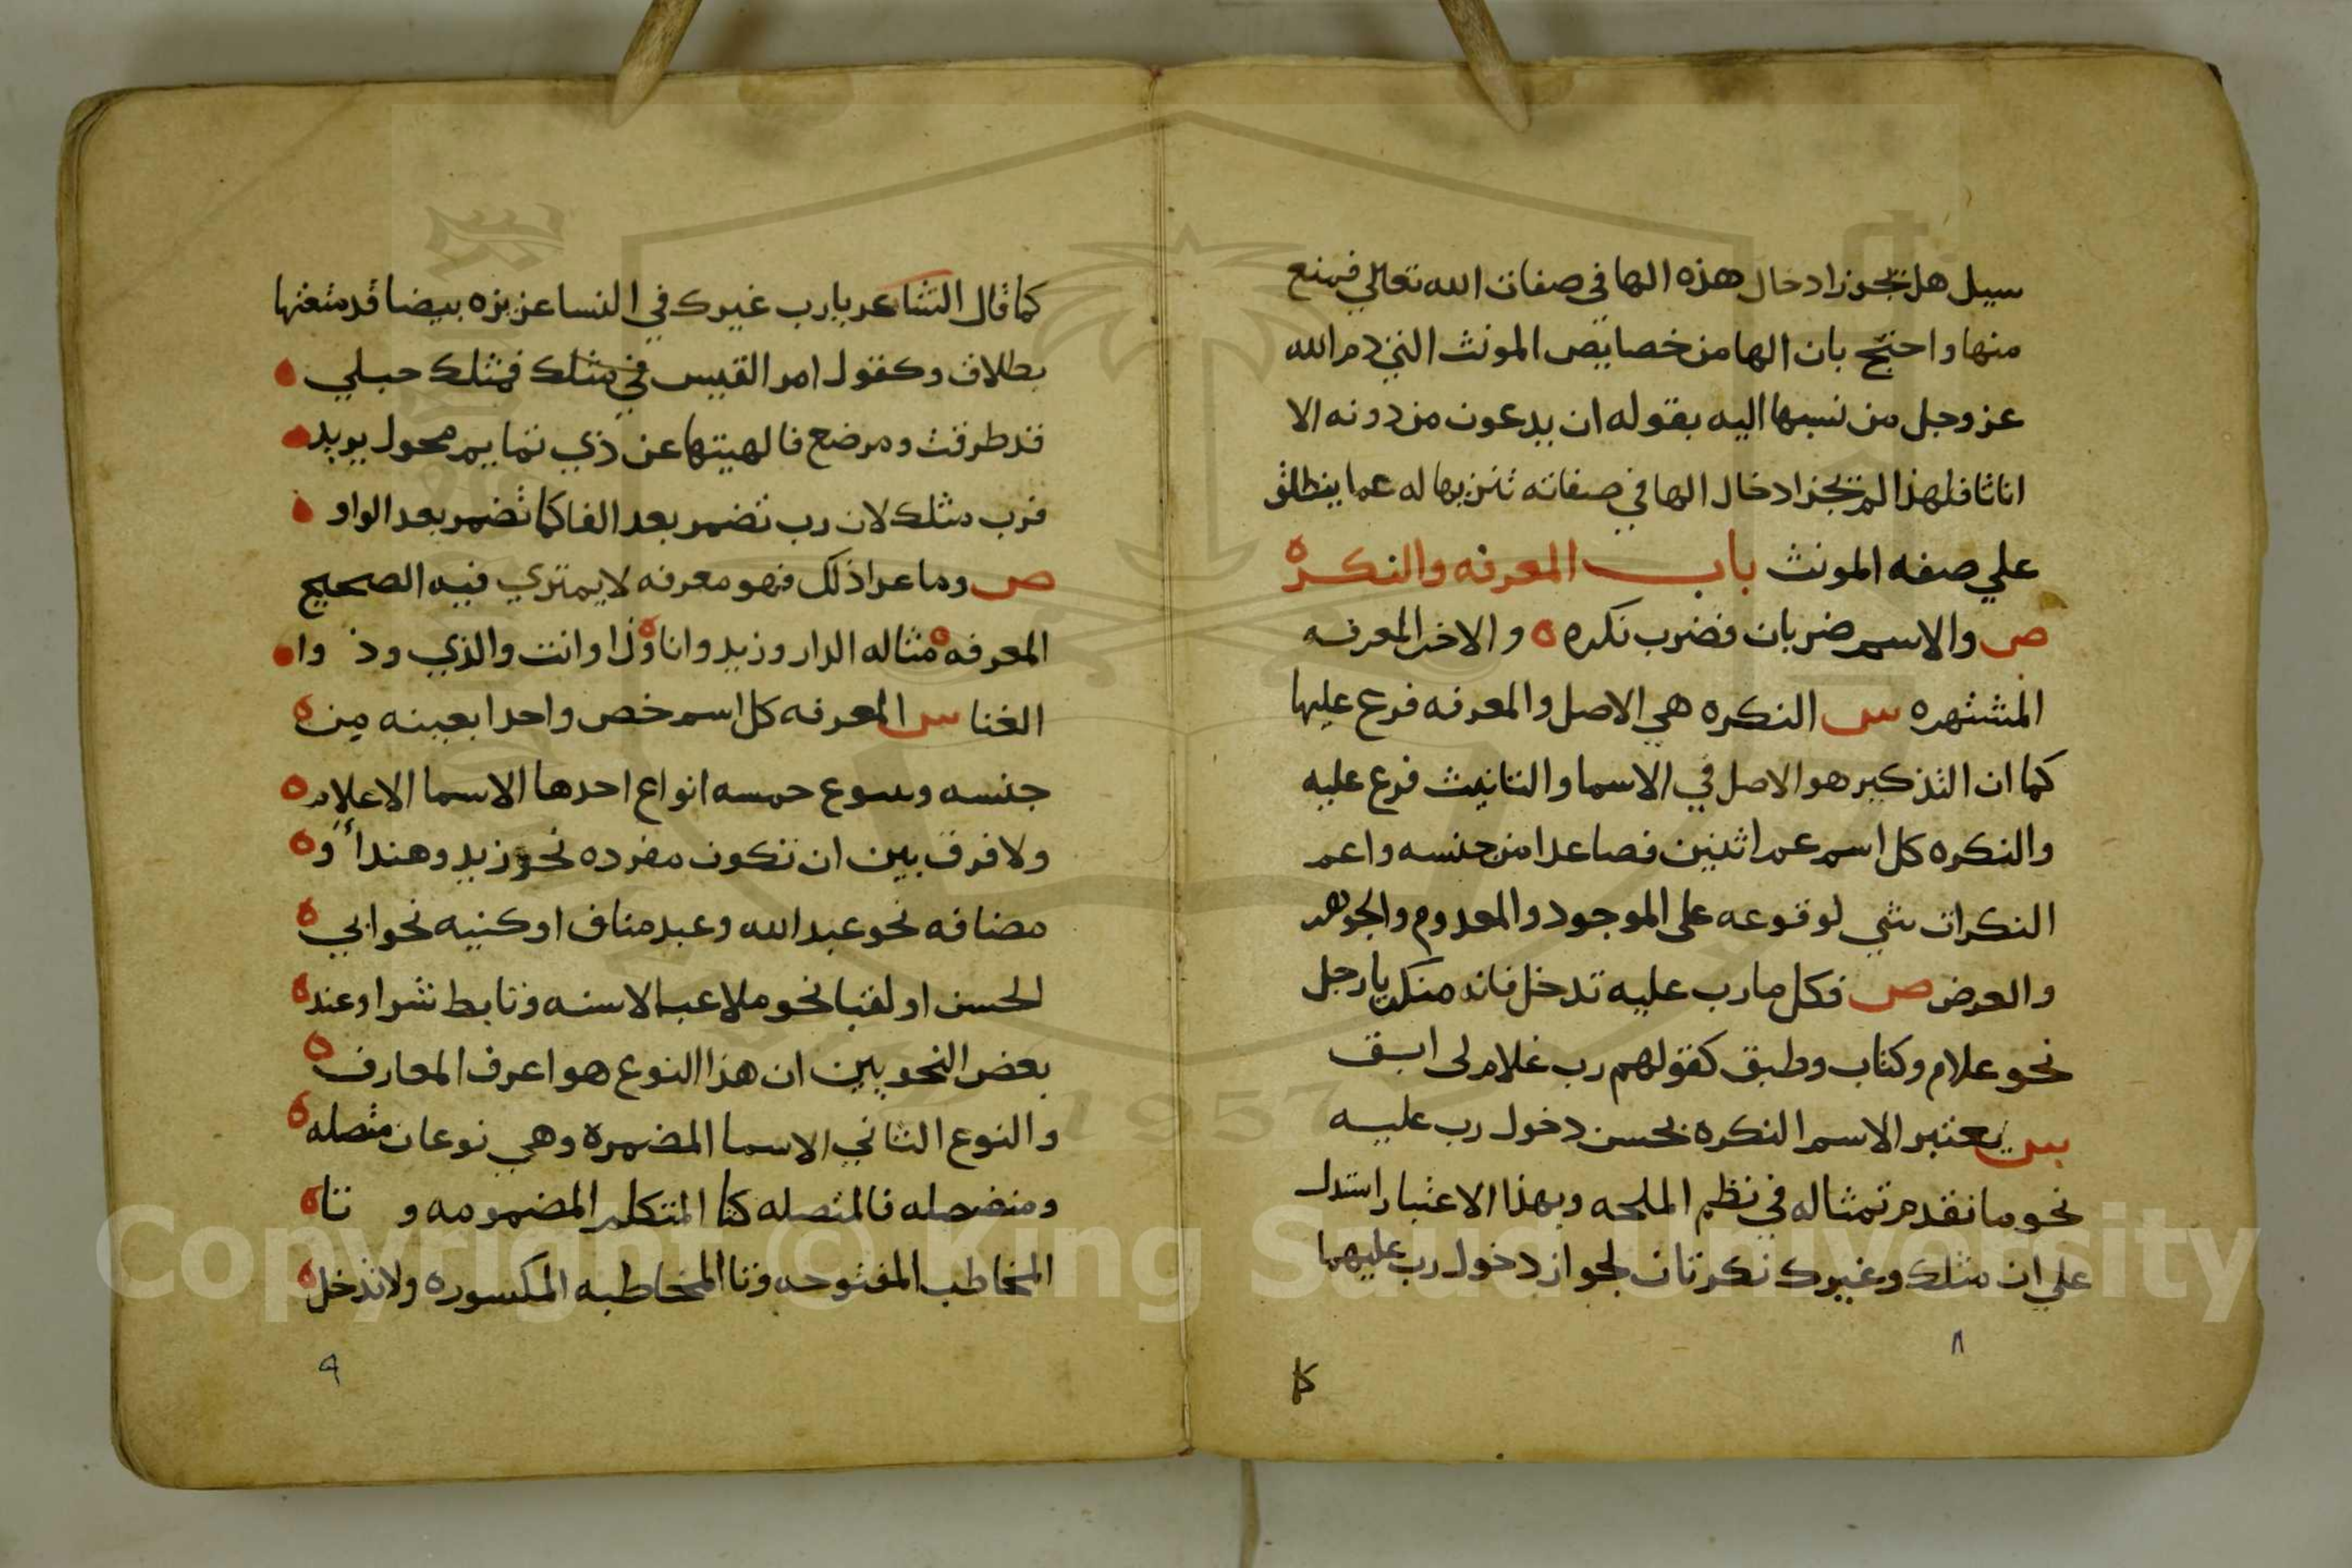 سيل هل تجوز ادخال هذه الها في صفات الله تعالي فمنع
منها واحتج بان الها من خصايص المونث الذي ذم الله
عز وجل من نسبها اليه بقوله ان يدعون من دونه الا
اناثا فلهذا لم تجز ادخال الها في صفاته تنزيها له عما ينطلق
علي صفه المونث باب المعرفه والنكره
ص والاسم ضربان فضرب نكره ه والاخر المعرفه
المشتهره س النكره هي الاصل والمعرفه فرع عليها
كما ان التذكير هو الاصل في الاسما والتانيث فرع عليه
والنكره كل اسم عم اثنين فصاعدا من جنسه واعم
النكرات شي لوقوعه على الموجود والمعدوم والجوهر
والعرض ص فكل ما رب عليه تدخل فانه منكر يا رجل
نحو علام وكتاب وطبق كقولهم رب غلام لى ابق
س يعتبر الاسم النكره بحسن دخول رب عليه
نحو ما تقدم تمثاله في نظم الملحه وبهذا الاعتبار استدل
علي ان مثلك وغيرك نكرتان لجواز دخول رب عليهما
٨
كا
كما قال الشاعر يا رب غيرك في النسا عزيزه بيضا قد متعتها
بطلاق وكقول امر القيس في مثلك فمثلك حبلي
قد طرقت ومرضع فالهيتها عن ذي تمايم محول يريد
فرب مثلك لان رب تضمر بعد الفا كما تضمر بعد الواو
ص وما عدا ذلك فهو معرفه لا يمتري فيه الصحيح
المعرفه ه مثاله الدار وزيد وانا وذا وانت والذي وذ وا
الغنا س المعرفه كل اسم خص واحدا بعينه من
جنسه وسوع حمسه انواع احدها الاسما الاعلام
ولا فرق بين ان تكون مفرده نحو زيد وهند أو
مضافه نحو عبد الله وعبد مناف او كنيه نحو ابي
الحسن او لقبا نحو ملاعب الاسنه وتابط شرا وعند
بعض النحويين ان هذا النوع هو اعرف المعارف
والنوع الثاني الاسما المضمره وهي نوعان متصله
ومنفصله فالمتصله كتا المتكلم المضمومه و تا
المخاطب المفتوحه وتا المخاطبه المكسوره ولا تدخل
٩
Copyright © King Saud University
1957